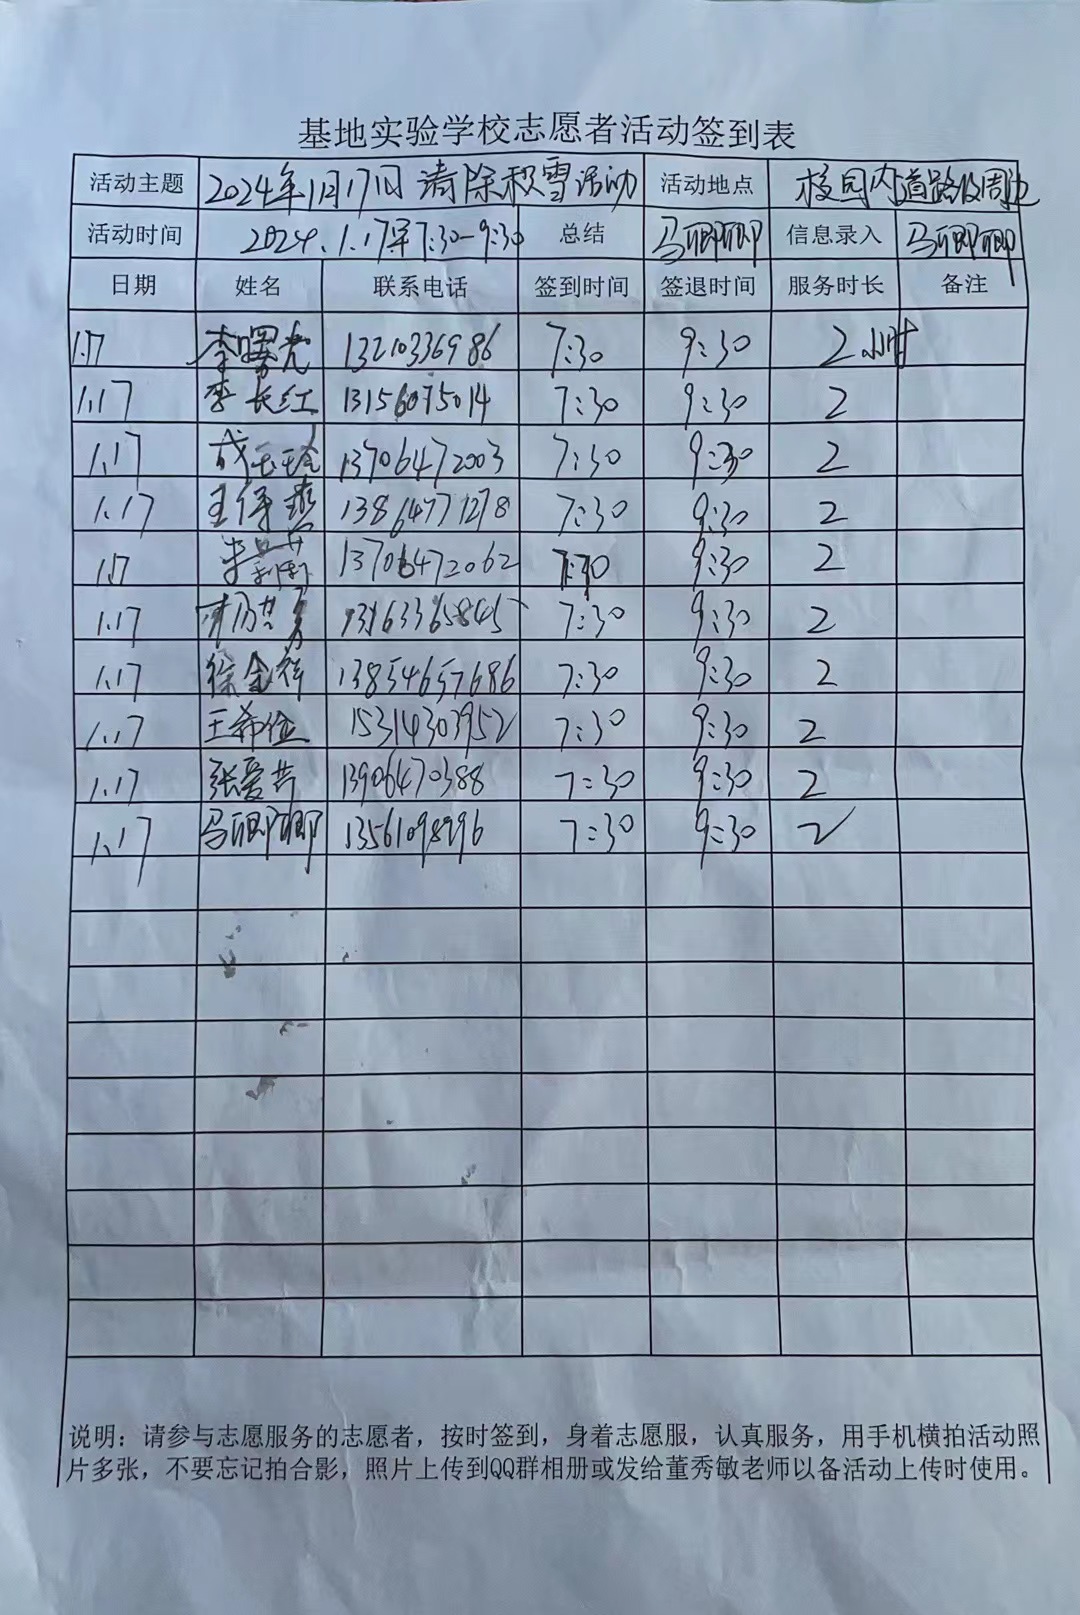 基地实验学校志愿者活动签到表
活动主题 2024年1月17日清除积雪活动 活动地点 校园内道路及周边
活动时间 2024.1.17早7:30-9:30 总结 马卿卿 信息录入 马卿卿
日期 姓名 联系电话 签到时间 签退时间 服务时长 备注
1.17 李曙光 13210336986 7:30 9:30 2小时
1.17 李长红 13156075014 7:30 9:30 2
1.17 成玉玲 13706472003 7:30 9:30 2
1.17 13864771278 7:30 9:30 2
1.17 13706472062 7:30 9:30 2
1.17 13163365845 7:30 9:30 2
1.17 徐金祥 13854657686 7:30 9:30 2
1.17 王希位 15314303952 7:30 9:30 2
1.17 张爱芹 13906470388 7:30 9:30 2
1.17 马卿卿 13561098996 7:30 9:30 2
说明：请参与志愿服务的志愿者，按时签到，身着志愿服，认真服务，用手机横拍活动照
片多张，不要忘记拍合影，照片上传到QQ群相册或发给董秀敏老师以备活动上传时使用。